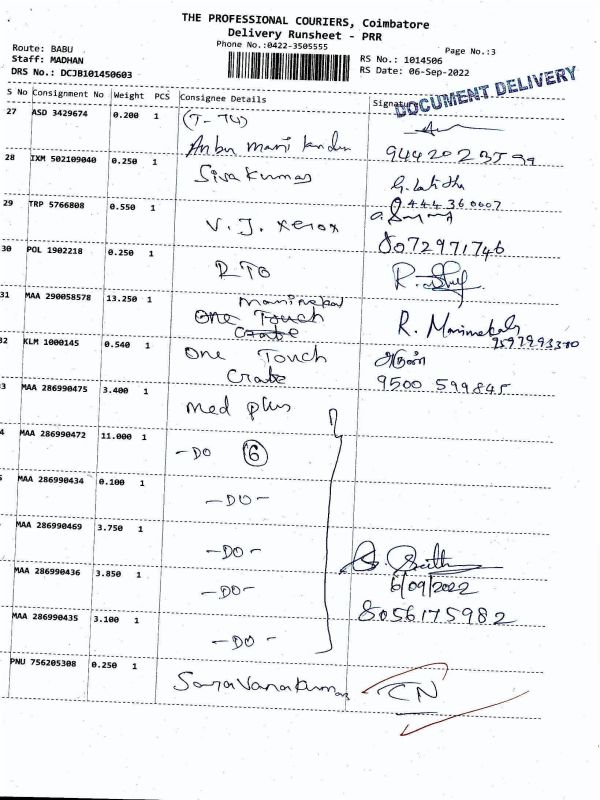 THE PROFESSIONAL COURIERS, Coimbatore
Delivery Runsheet - PRR
Phone No.:0422-3505555
Page No.:3
Route: BABU
Staff: MADHAN
DRS No.: DCJB101450603
RS No.: 1014506
RS Date: 06-Sep-2022
DOCUMENT DELIVERY
S No Consignment No Weight PCS Consignee Details Signature
27 ASD 3429674 0.200 1 (T-74)
Anbu mani kandan
28 IXM 502109040 0.250 1 Sivakumar
G. Latitha
9444360007
29 TRP 5766808 0.550 1
V. J. xerox 8072971746
30 POL 1902218 0.250 1
RTO
31 MAA 290058578 13.250 1 Manimekal
One Touch
Crate
R. Manimekala
32 KLM 1000145 0.540 1 One Touch
Crate
அருண்
9500 599845
3 MAA 286990475 3.400 1 med plus
4 MAA 286990472 11.000 1 -DO 6
MAA 286990434 0.100 1 -DO-
MAA 286990469 3.750 1 -DO-
MAA 286990436 3.850 1 -DO-
6/09/2022
8056175982
MAA 286990435 3.100 1 -DO-
PNU 756205308 0.250 1 SaraVanakumar CN